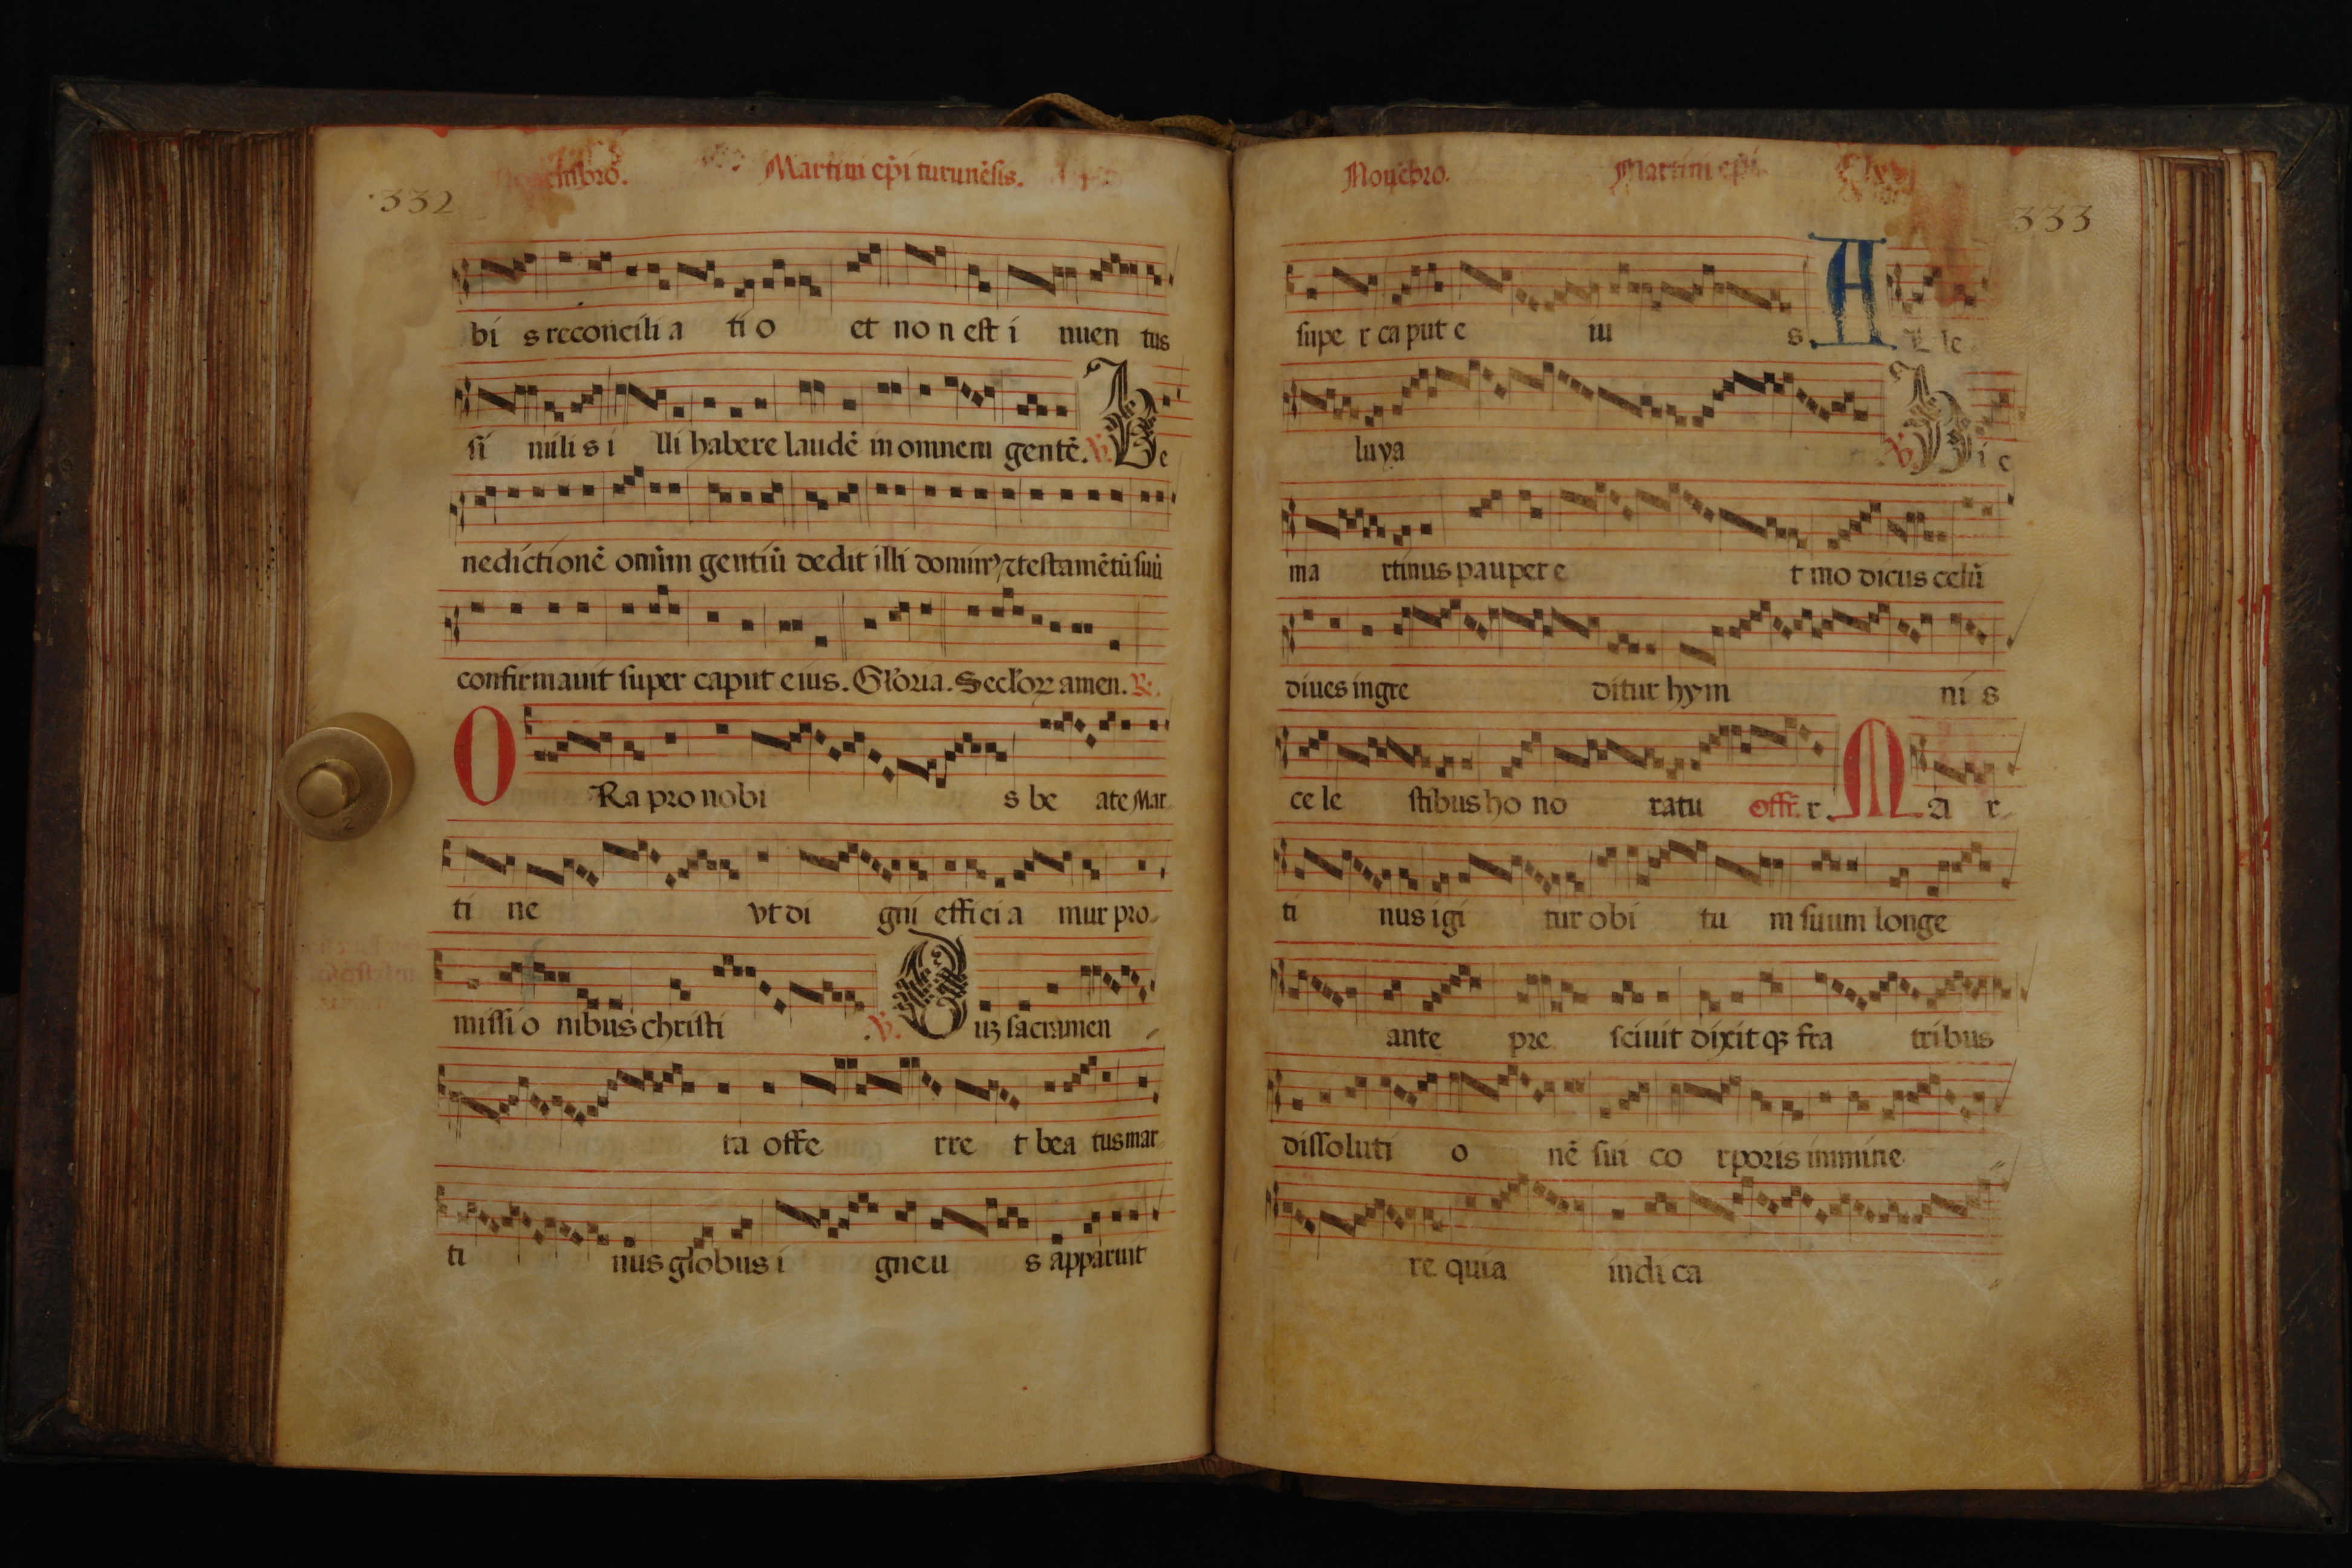 Nouembro. Martini ep̄i turunēsis.
·332
bi s reconcili a ti o et no n est i nuen tus
si mili s i lli habere laudē in omnem gentē. ℣. Be
nedictionē omīm gentiū dedit illi domin⁹ ⁊ testamētū suū
confirmauit super caput eius. Gloria. Seclorꝝ amen. ℟.
O Ra pro nobi s be ate Mar
ti ne vt di gni effici a mur pro
missi o nibus christi .℣. Quiꝫ sacramen
ta offe rre t bea tus mar
ti nus globus i gne u s apparuit
Nouēbro. Martini ep̄i
333
supe r caput e iu s. A L le
luya ℣. Hic
ma rtinus paupere t mo dicus celū
diues ingre ditur hym ni s
ce le stibus ho no ratu offr̄. r. M A r
ti nus igi tur obi tu m suum longe
ante pre sciuit dixit qꝫ fra tribus
dissoluti o nē sui co rporis immine
re quia indi ca